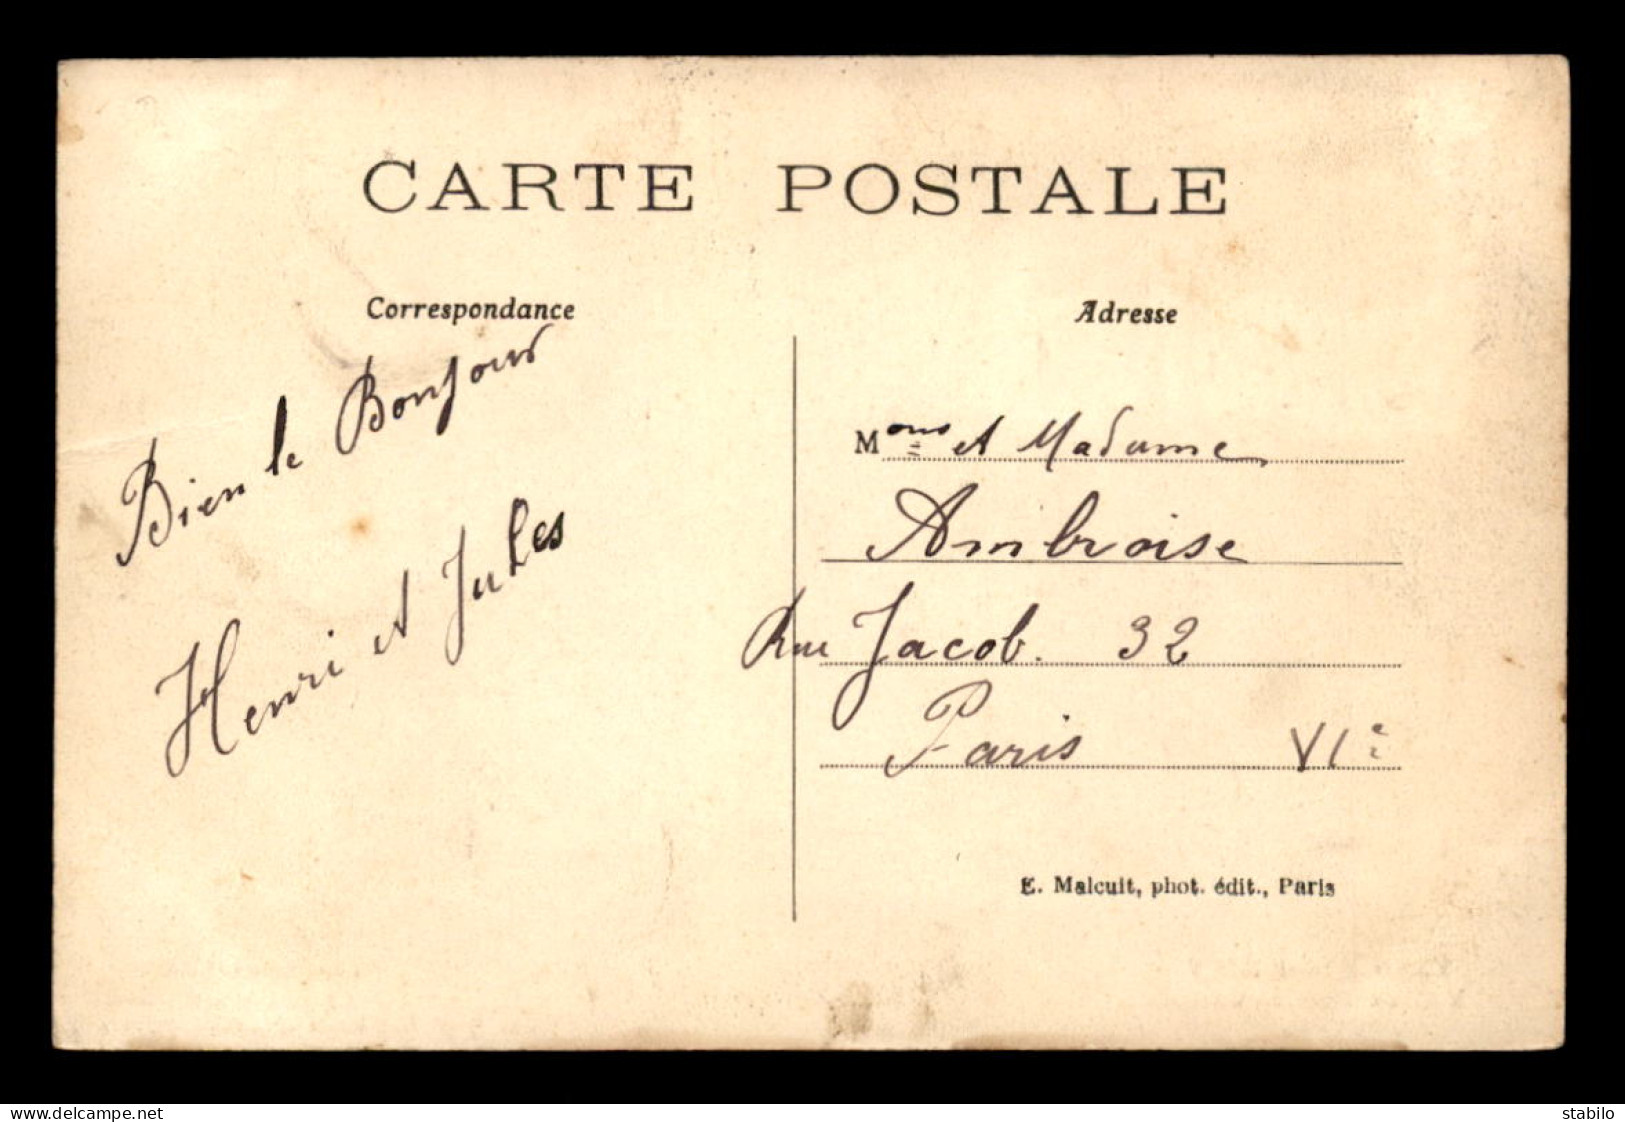 CARTE POSTALE
Correspondance
Bien le Bonjour
Henri et Jules
Adresse
Mons et Madame
Ambroise
Rue Jacob. 32
Paris VIe
E. Malcuit, phot. édit., Paris
www.delcampe.net
stabilo